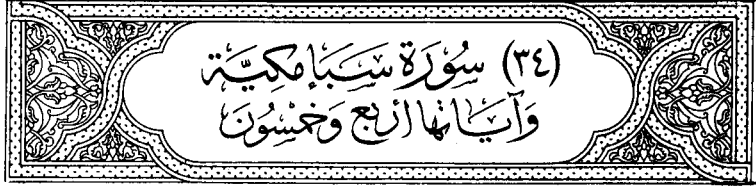 (٣٤) سُورَة سَبَإ مكيَّة
وَآيَاتها أربع وَخمْسُونَ